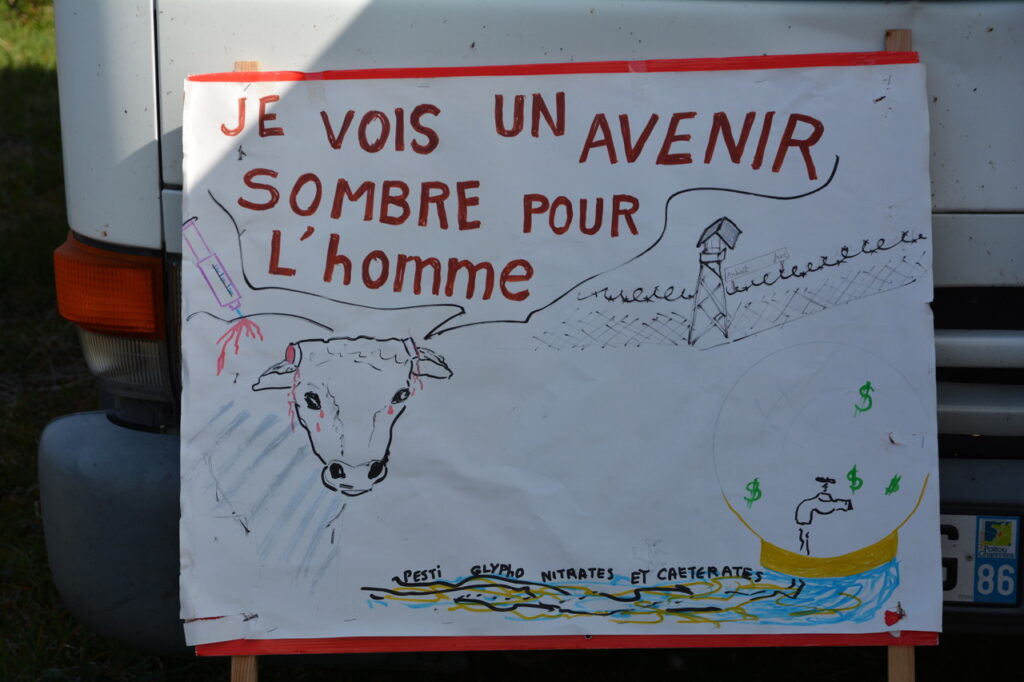 JE VOIS UN AVENIR
SOMBRE POUR
L'homme
$
$
$
$
PESTI GLYPHO NITRATES ET CAETERATES
Poitou
Charentes
86